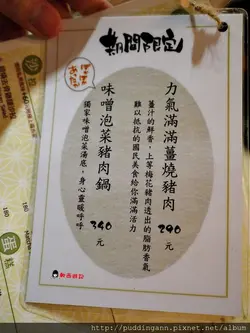 期間限定
ぽっぽ
あたる
力氣滿滿薑燒豬肉
290元
薑汁的鮮香,上等梅花豬肉透出的脂肪香氣
難以抵抗的國民美食給你滿滿活力
味噌泡菜豬肉鍋
340元
獨家味噌泡菜湯底,身心靈暖呼呼
http://puddingann.pixnet.net/album